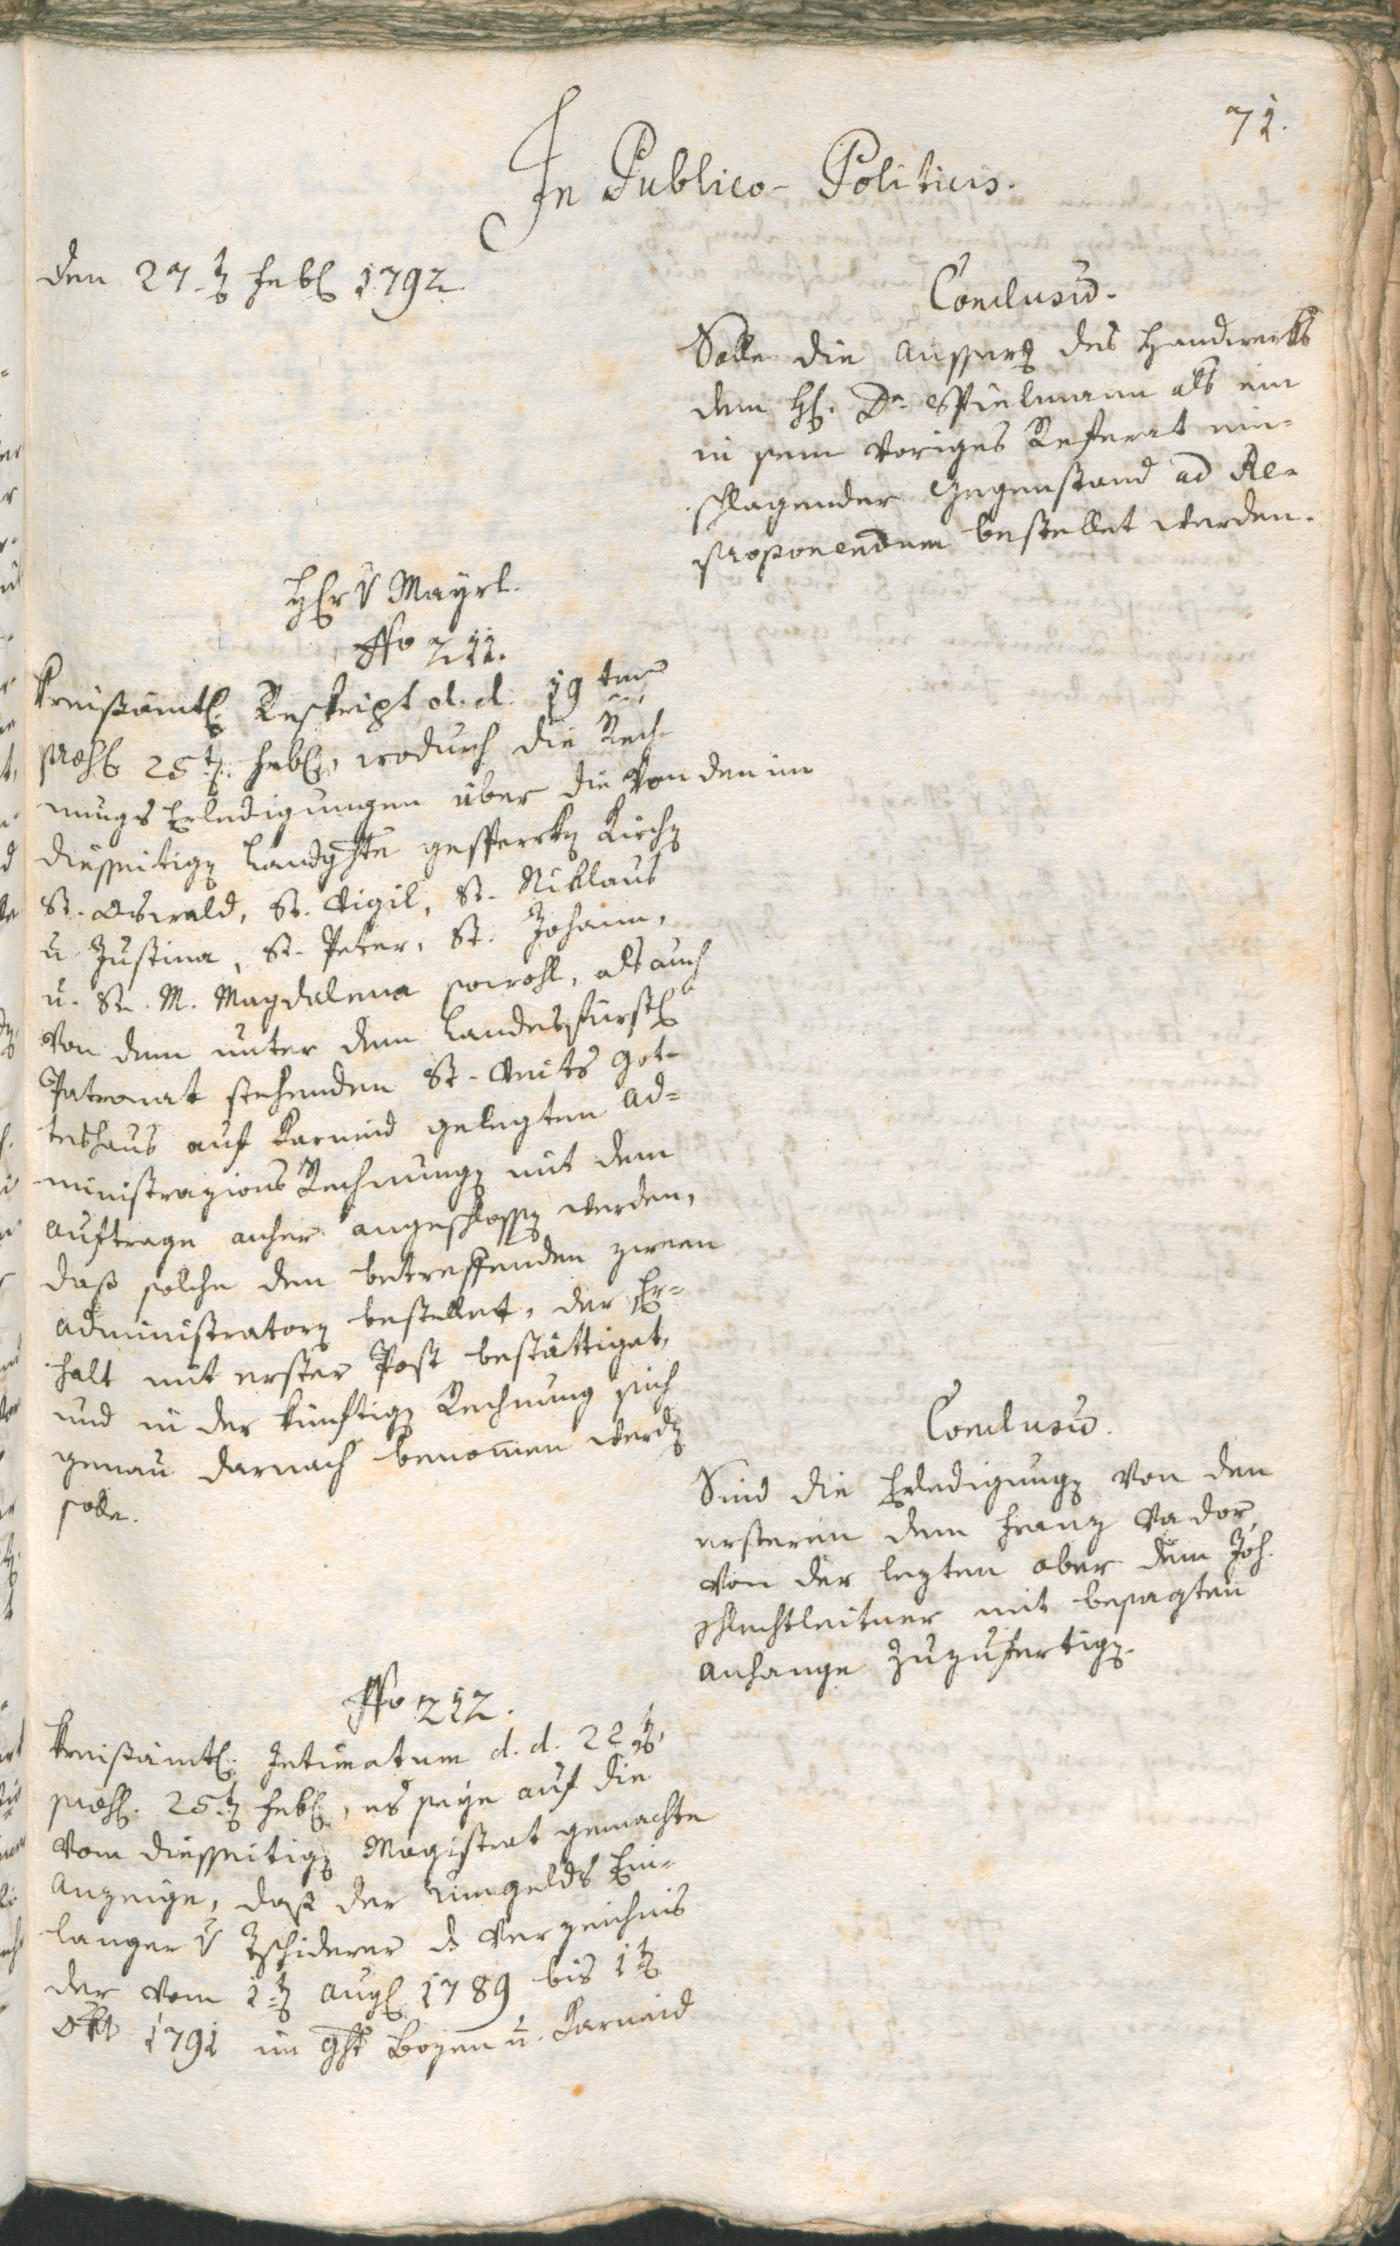 71.
In Publico-Politicis.
den 27t. Febr 1792
Conclusum.
Solle die Äusserg des Handwerks
dem H. Dr. Spielmann als ein
in sein voriges Referat ein=
schlagender Gegenstand ad Re=
proponendum bestellet werden.
Herr v Mayrl.
Nro 211.
Kreisämtl. Reskript d. d. 19ten
praes. 25t. Febr, wodurch die Rech=
nungs Erledigungen über die von den im
diesseitigen Landgchte gesperrten Kirchen
St. Oswald, St. Vigil, St. Niklaus
u Justina, St. Peter, St. Johann,
u. St. M. Magdalena sowohl, als auch
von dem unter dem Landesfürstl
Patronat stehenden St. Veits Got=
teshaus auf Karneid gelegten Ad=
ministrazions Rechnungen mit dem
Auftrage anher angeschlossen werden,
daß solche den betreffenden zween
Administratorn bestellet, der Er=
halt mit erster Post bestättiget,
und in der künftigen Rechnung sich
genau darnach benommen werden
solle.
Conclusum.
Sind die Erledigungen von den
ersteren dem Franz Vador,
von der lezten aber dem Joh.
Schlechtleitner mit besagten
Anhange zuzufertigen.
Nro 212.
Kreisämtl. Intimatum d. d. 22t.
praes. 25t. Febr, es seye auf die
vom diesseitigen Magistrat gemachte
Anzeige, daß der Umgelds Ein=
langer v Tschiderer d. Verzeichnis
der vom 1t. Aug 1789 bis 1t.
Okt 1791 im Ght Bozen u. Karneid